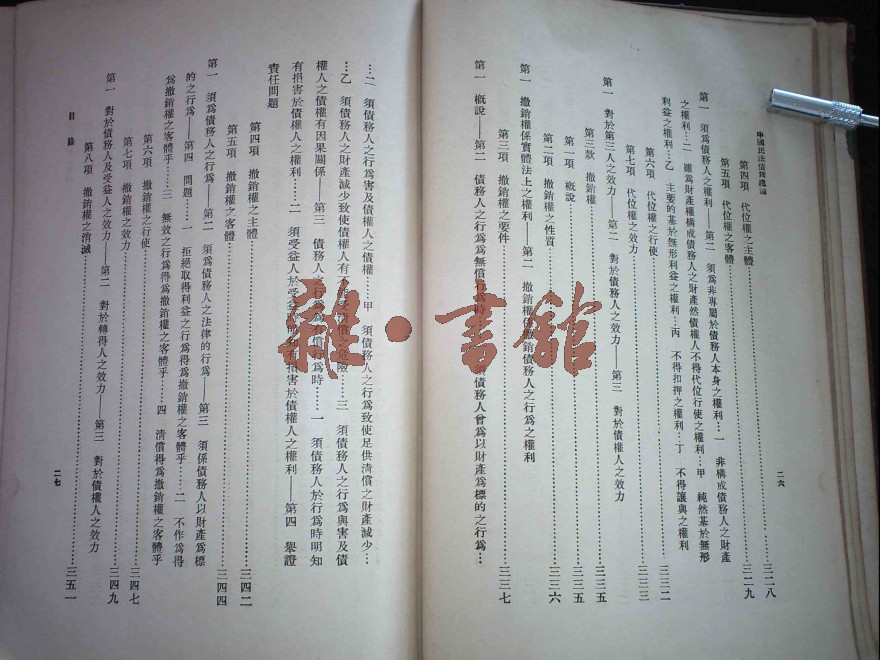 中國民法債編總論
二六
第四項 代位權之主體…………三二八
第五項 代位權之客體…………三二九
第一 須爲債務人之權利——第二 須爲非專屬於債務人本身之權利…一 非構成債務人之財產
之權利…二 雖爲財產權構成債務人之財產然債權人不得代位行使之權利…甲 純然基於無形
利益之權利…乙 主要的基於無形利益之權利…丙 不得扣押之權利…丁 不得讓與之權利
第六項 代位權之行使…………三三二
第七項 代位權之效力…………三三三
第一 對於第三人之效力——第二 對於債務人之效力——第三 對於債權人之效力
第三款 撤銷權…………三三五
第一項 槪說…………三三五
第二項 撤銷權之性質…………三三六
第一 撤銷權係實體法上之權利——第二 撤銷權係撤銷債務人之行爲之權利
第三項 撤銷權之要件…………三三七
第一 槪說——第二 債務人之行爲爲無償行爲時…一 須債務人曾爲以財產爲標的之行爲…
…二 須債務人之行爲害及債權人之債權……甲 須債務人之行爲致使足供淸償之財產減少…
…乙 須債務人之財產減少致使債權人有不能受淸償之危險…三 須債務人之行爲與害及債
權人之債權有因果關係——第三 債務人之行爲爲有償行爲時…一 須債務人於行爲時明知
有損害於債權人之權利……二 須受益人於受益時知有損害於債權人之權利——第四 舉證
責任問題
第四項 撤銷權之主體…………三四二
第五項 撤銷權之客體…………三四四
第一 須爲債務人之行爲——第二 須爲債務人之法律的行爲——第三 須係債務人以財產爲標
的之行爲——第四 問題……一 拒絕取得利益之行爲得爲撤銷權之客體乎……二 不作爲得
爲撤銷權之客體乎……三 無效之行爲得爲撤銷權之客體乎……四 淸償得爲撤銷權之客體乎
第六項 撤銷權之行使…………三四七
第七項 撤銷權之效力…………三四九
第一 對於債務人及受益人之效力——第二 對於轉得人之效力——第三 對於債權人之效力
第八項 撤銷權之消滅…………三五一
目錄
二七
雜·書館